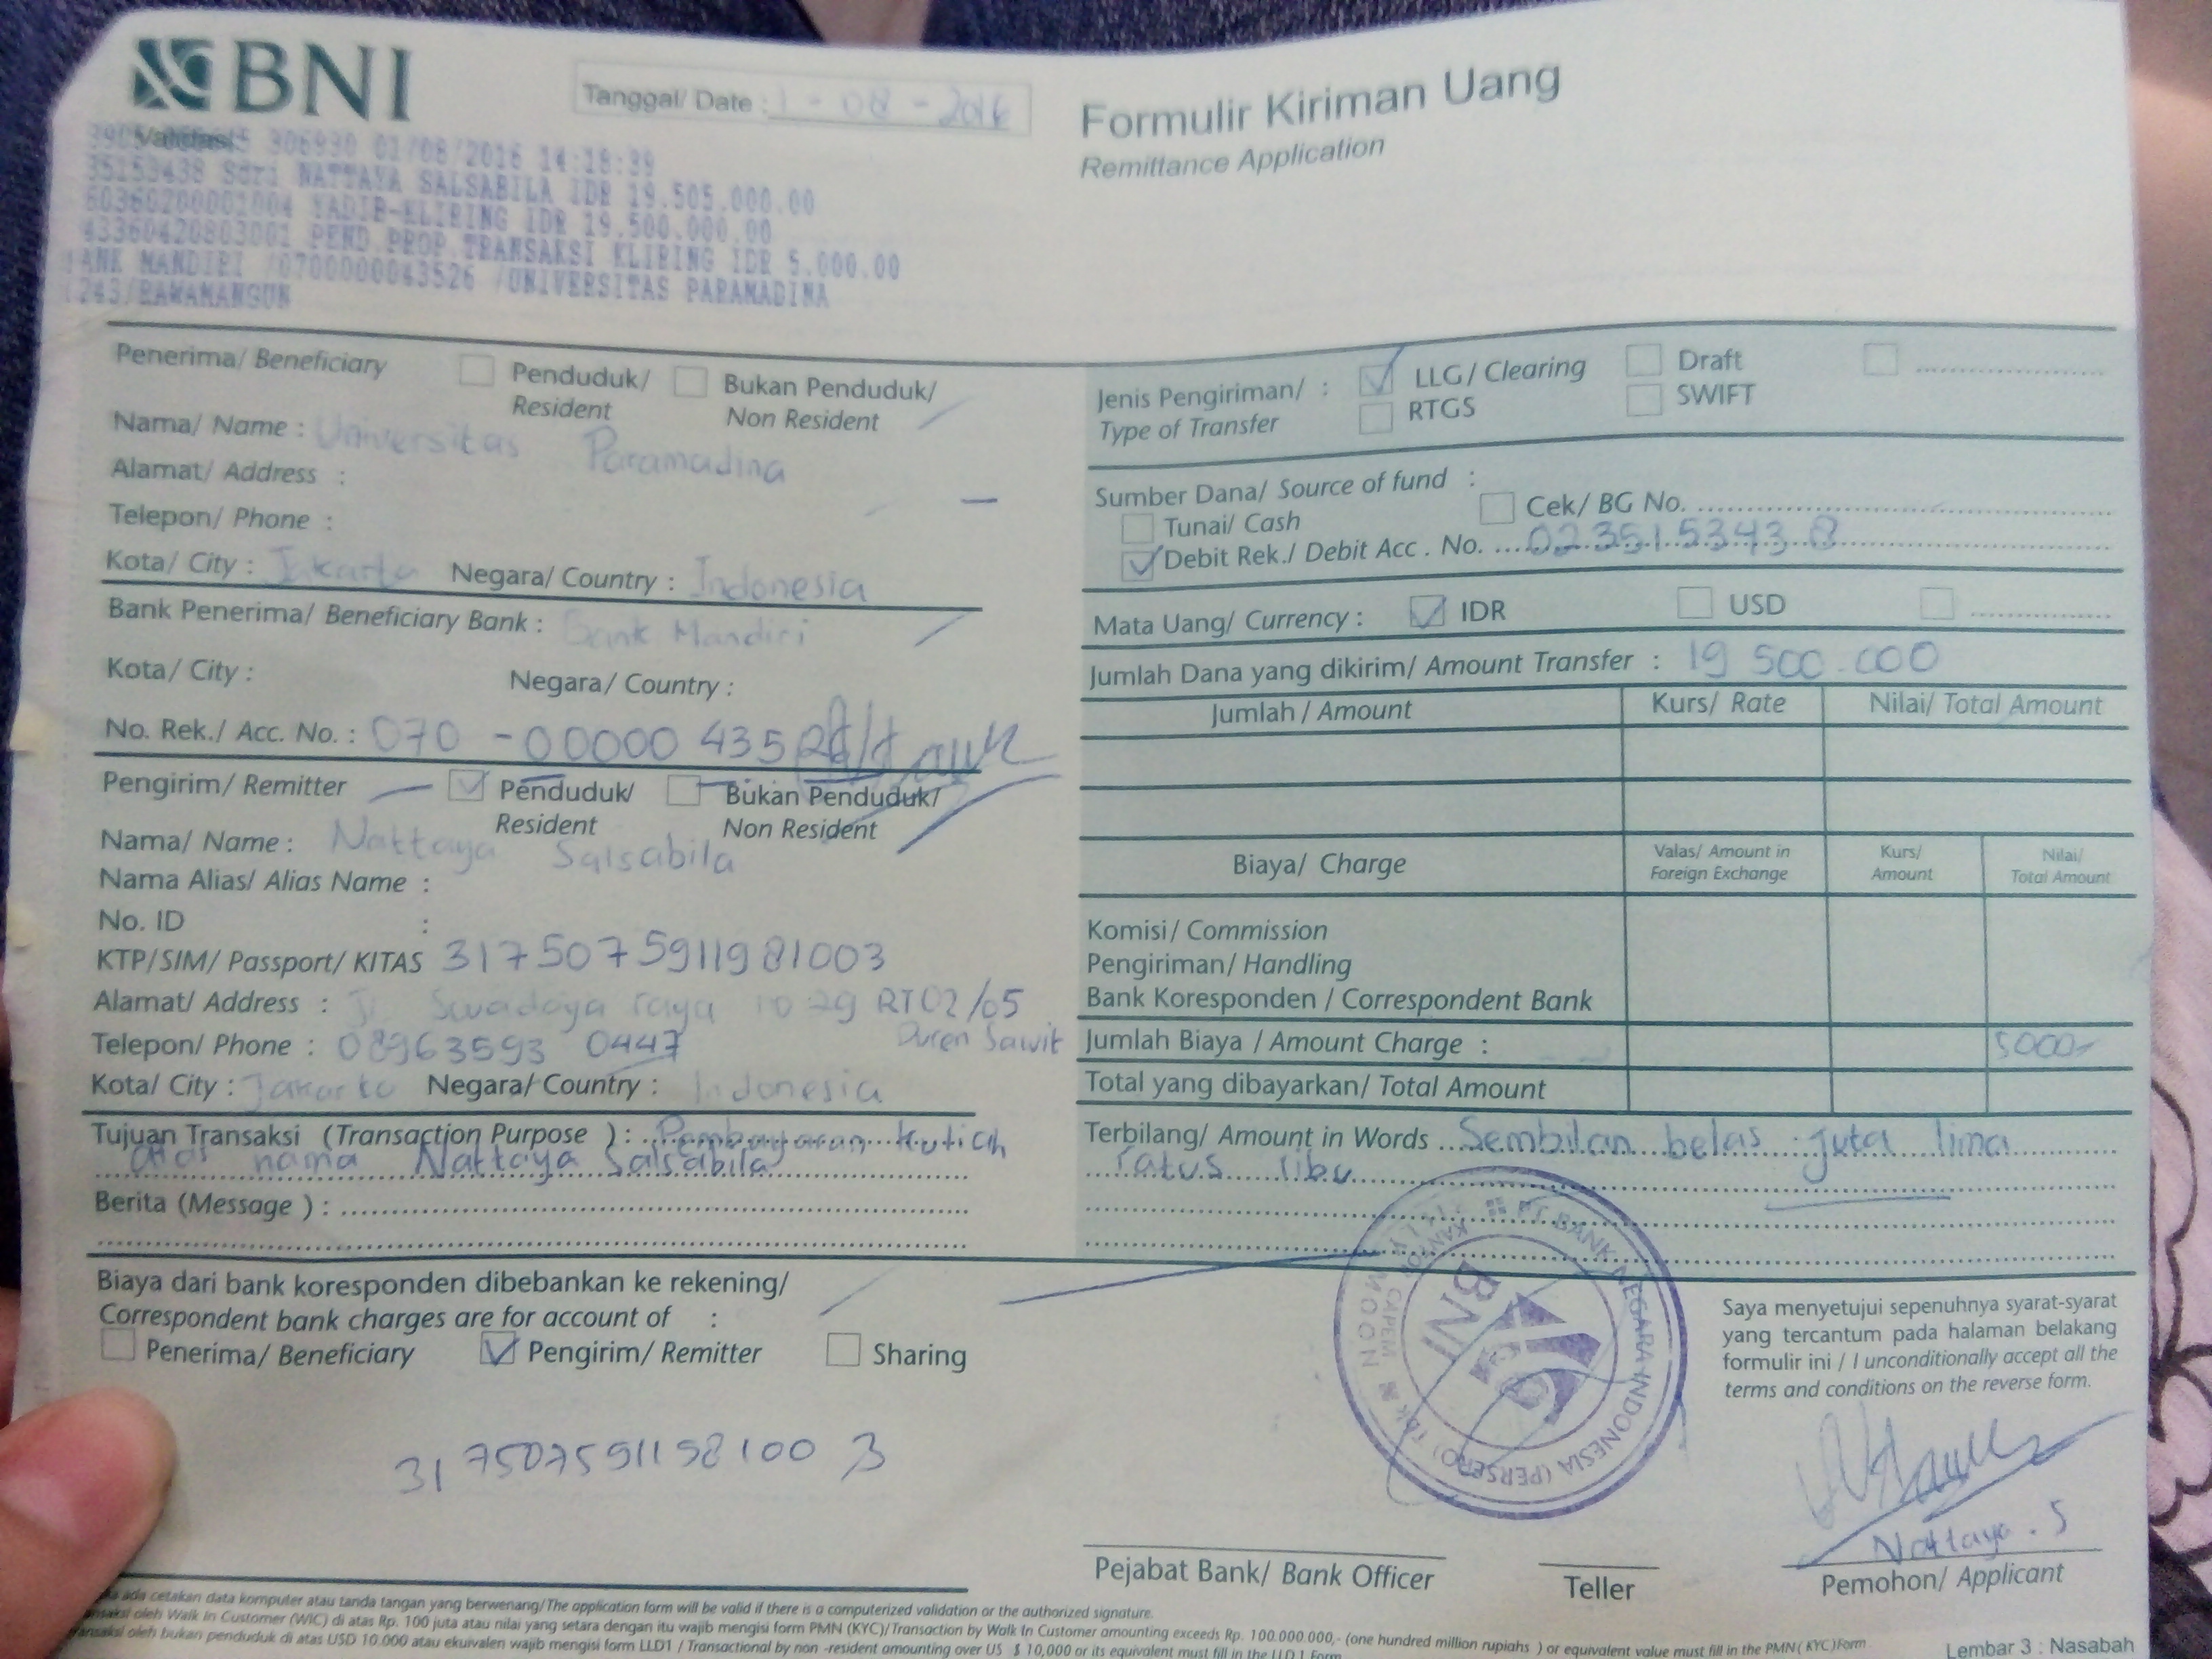 BNI
Tanggal/ Date : 1 - 08 - 2016
Formulir Kiriman Uang
Remittance Application
Validasi
306930 01/08/2016 14:18:39
35153438 Sdri NATTAYA SALSABILA IDR 19.505.000.00
60360200001004 YADIB-KLIRING IDR 19.500.000.00
43360420803001 PEND.PROP.TRANSAKSI KLIRING IDR 5.000.00
BANK MANDIRI /0700000043526 /UNIVERSITAS PARAMADINA
1243/RAWAMANGUN
Penerima/ Beneficiary
Penduduk/ Resident
Bukan Penduduk/ Non Resident
Nama/ Name : Universitas Paramadina
Alamat/ Address :
Telepon/ Phone :
Kota/ City : Jakarta Negara/ Country : Indonesia
Bank Penerima/ Beneficiary Bank : Bank Mandiri
Kota/ City : Negara/ Country :
No. Rek./ Acc. No. : 070 - 00000 43526
Pengirim/ Remitter
Penduduk/ Resident
Bukan Penduduk/ Non Resident
Nama/ Name : Nattaya Salsabila
Nama Alias/ Alias Name :
No. ID :
KTP/SIM/ Passport/ KITAS 3175075911981003
Alamat/ Address : Jl Swadaya raya no 29 RT02/05
Duren Sawit
Telepon/ Phone : 08963593 0447
Kota/ City : Jakarta Negara/ Country : Indonesia
Tujuan Transaksi (Transaction Purpose ) : Pembayaran kuliah
atas nama Nattaya Salsabila
Berita (Message ) :
Biaya dari bank koresponden dibebankan ke rekening/
Correspondent bank charges are for account of :
Penerima/ Beneficiary Pengirim/ Remitter Sharing
3175075911981003
Jenis Pengiriman/ :
Type of Transfer
LLG/ Clearing Draft
RTGS SWIFT
Sumber Dana/ Source of fund :
Tunai/ Cash Cek/ BG No.
Debit Rek./ Debit Acc . No. 0235153438
Mata Uang/ Currency : IDR USD
Jumlah Dana yang dikirim/ Amount Transfer : 19 500.000
Jumlah / Amount Kurs/ Rate Nilai/ Total Amount
Biaya/ Charge
Valas/ Amount in Foreign Exchange
Kurs/ Amount
Nilai/ Total Amount
Komisi/ Commission
Pengiriman/ Handling
Bank Koresponden / Correspondent Bank
Jumlah Biaya / Amount Charge : 5000,-
Total yang dibayarkan/ Total Amount
Terbilang/ Amount in Words Sembilan belas juta lima
ratus ribu
PT BANK NEGARA INDONESIA (PERSERO) Tbk
KANTOR CAPEM
BNI
Saya menyetujui sepenuhnya syarat-syarat
yang tercantum pada halaman belakang
formulir ini / I unconditionally accept all the
terms and conditions on the reverse form.
Nattaya . S
Pejabat Bank/ Bank Officer
Teller
Pemohon/ Applicant
ada cetakan data komputer atau tanda tangan yang berwenang/The application form will be valid if there is a computerized validation or the authorized signature.
oleh Walk In Customer (WIC) di atas Rp. 100 juta atau nilai yang setara dengan itu wajib mengisi form PMN (KYC)/Transaction by Walk In Customer amounting exceeds Rp. 100.000.000,- (one hundred million rupiahs ) or equivalent value must fill in the PMN( KYC)Form
oleh bukan penduduk di atas USD 10.000 atau ekuivalen wajib mengisi form LLD1 / Transactional by non -resident amounting over US $ 10,000 or its equivalent must fill in the LLD.1 Form
Lembar 3 : Nasabah